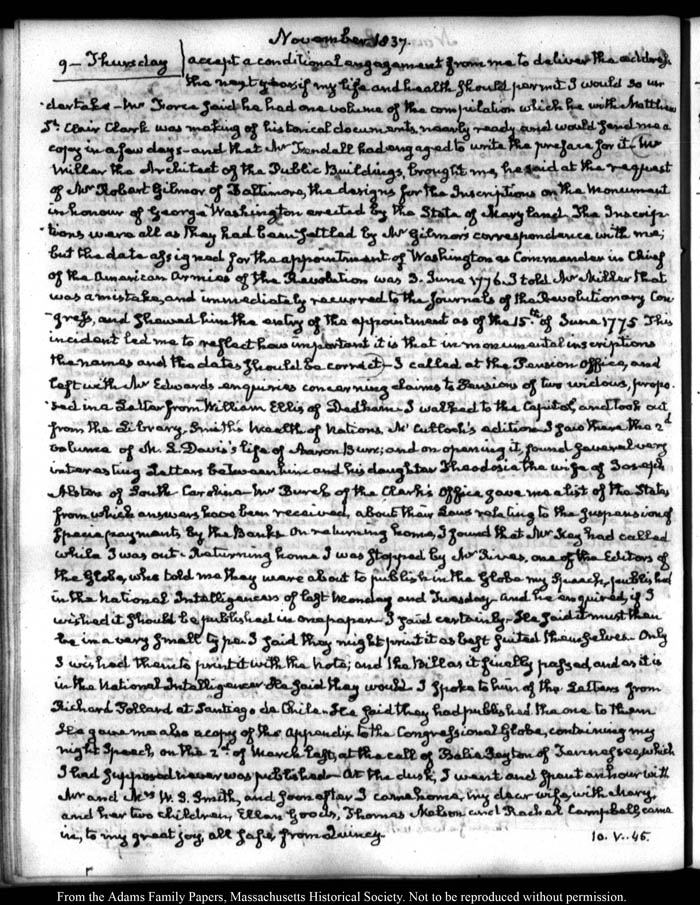 November 1837.
9 – Thursday accept a conditional engagement from me to deliver the address
the next year if my life and health should permit I would so un
dertake – Mr Force said he had one volume of the compilation which he with Matthew
St. Clair Clark was making of historical documents, nearly ready and would send me a
copy in a few days – and that Mr Kendall had engaged to write the preface for it – Mr
Miller the Architect of the Public Buildings, brought me, he said at the request
of Mr Robert Gilmor of Baltimore, the designs for the Inscriptions on the Monument
in honour of George Washington erected by the State of Maryland. The Inscrip-
tions were all as they had been settled by Mr Gilmor's correspondence with me;
but the date assigned for the appointment of Washington as Commander in Chief
of the American Armies of the Revolution was 3. June 1776. I told Mr Miller that
was a mistake, and immediately recurred to the Journals of the Revolutionary Con
gress, and shewed him the entry of the appointment as of the 15th of June 1775 This
incident led me to reflect how important it is that in monumental inscriptions
the names and the dates should be correct – I called at the Pension Office, and
left with Mr Edwards enquiries concerning claims to Pensions of two widows, propo
sed in a Letter from William Ellis of Dedham. I walked to the Capitol, and took out
from the Library, Smith's Wealth of Nations, McCulloch's edition. I saw there the 2d
volume of M. L. Davis's life of Aaron Burr; and on opening it, found several very
interesting Letters between him and his daughter Theodosia the wife of Joseph
Alston of South Carolina – Mr Burch of the Clerk's Office, gave me a list of the States
from which answers have been received, about their Laws relating to the suspension of
specie payments by the Banks On returning home, I found that Mr Key had called
while I was out – Returning home I was stopped by Mr Rives, one of the Editors of
the Globe, who told me they were about to publish in the Globe my Speech, published
in the National Intelligencers of last Monday and Tuesday – and he enquired, if I
wished it should be published in one paper – I said certainly – He said it must then
be in a very small type. I said they might print it as best suited themselves – Only
I wished them to print it with the note; and the Bill as it finally passed, and as it is
in the National Intelligencer He said they would – I spoke to him of the Letters from
Richard Pollard at Santiago de Chile – He said they had published the one to them
He gave me also a copy of the Appendix to the Congressional Globe, containing my
night Speech, on the 2nd of March last, at the call of Balie Peyton of Tennessee, which
I had supposed never was published – At the dusk, I went and spent an hour with
Mr and Mrs W. S. Smith, and soon after I came home, my dear wife, with Mary,
and her two children, Ellen Goods, Thomas Nelson and Rachel Campbell, came
in, to my great joy, all safe from Quincy.
10. V.. 45.
From the Adams Family Papers, Massachusetts Historical Society. Not to be reproduced without permission.